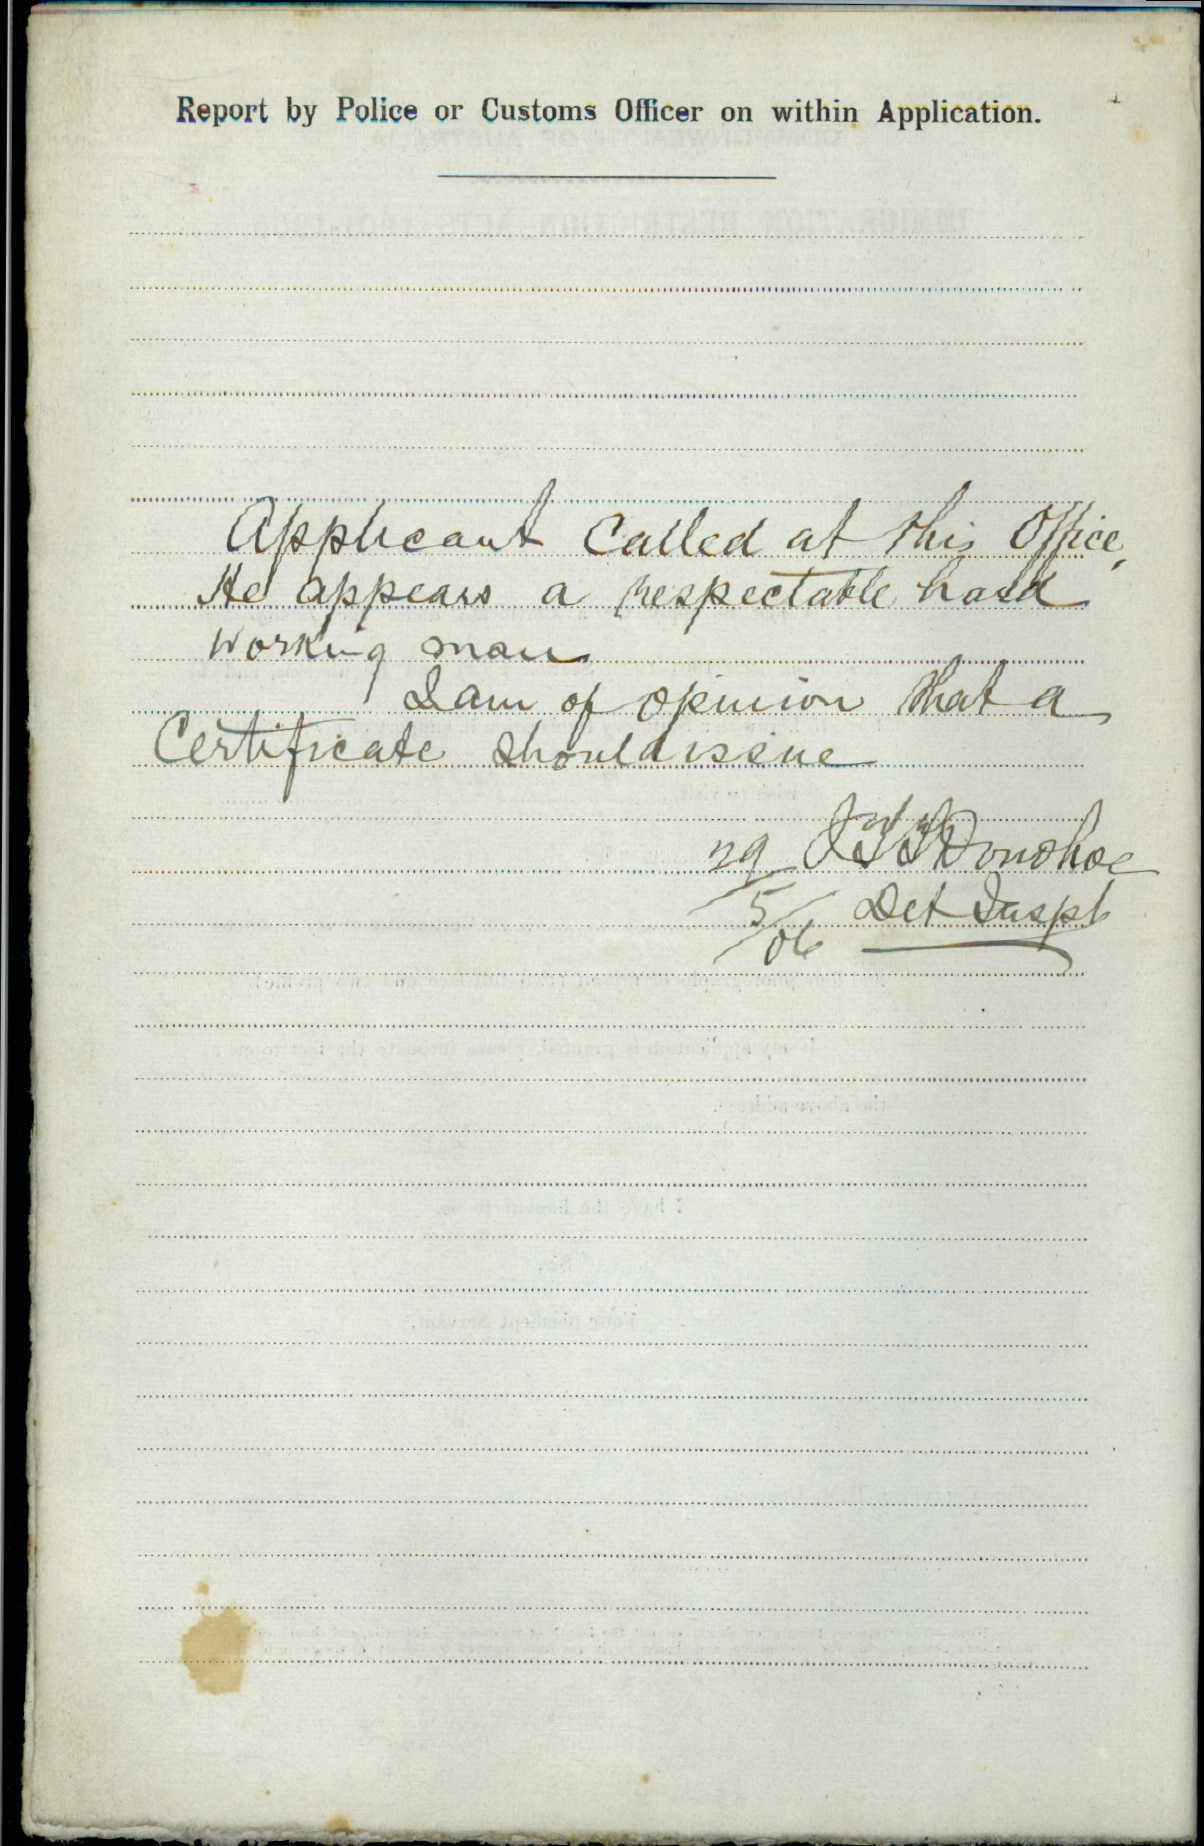 Report by Police or Customs Officer on within Application.
Applicant called at this Office,
He appears a respectable hard
working man
I am of opinion that a
Certificate should issue
29 Donohoe
5/06 Det Inspt